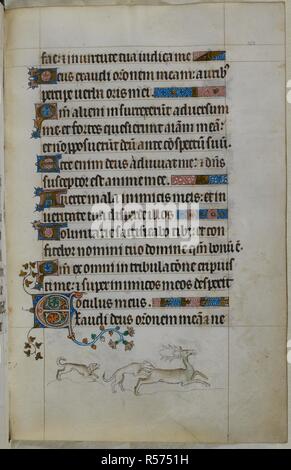 fac: et in virtute tua iudica me
Deus exaudi orōnem meam: aurib;
percipe verba oris mei.
Qm alieni insurrexerunt adversum
me et fortes quesierunt aīam meā:
et nō p̄posuerūt deū ante cōspectū suū.
Ecce enim deus adiuvat me: et dn̄s
susceptor est anime mee.
Averte mala inimicis meis: et in
veritate tua disperde illos
Voluntarie sacrificabo tibi: et con
fitebor nomini tuo domine qm̄ bonū ē.
Qm ex omni tribulatōne eripuis
ti me: et super inimicos meos despexit
oculus meus.
Exaudi deus orōnem meā et ne
alamy
Image ID: R5751H
www.alamy.com